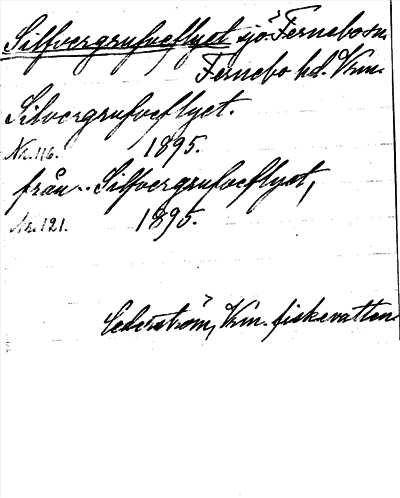 Silfvergrufveflyet sjö. Fernebo sn.
Fernebo hd. Vrm.
Silvergrufveflyet.
Nr. 116. 1895.
från.. Silfvergrufveflyet,
Nr. 121. 1895.
Cederström, Vrm. fiskevatten.